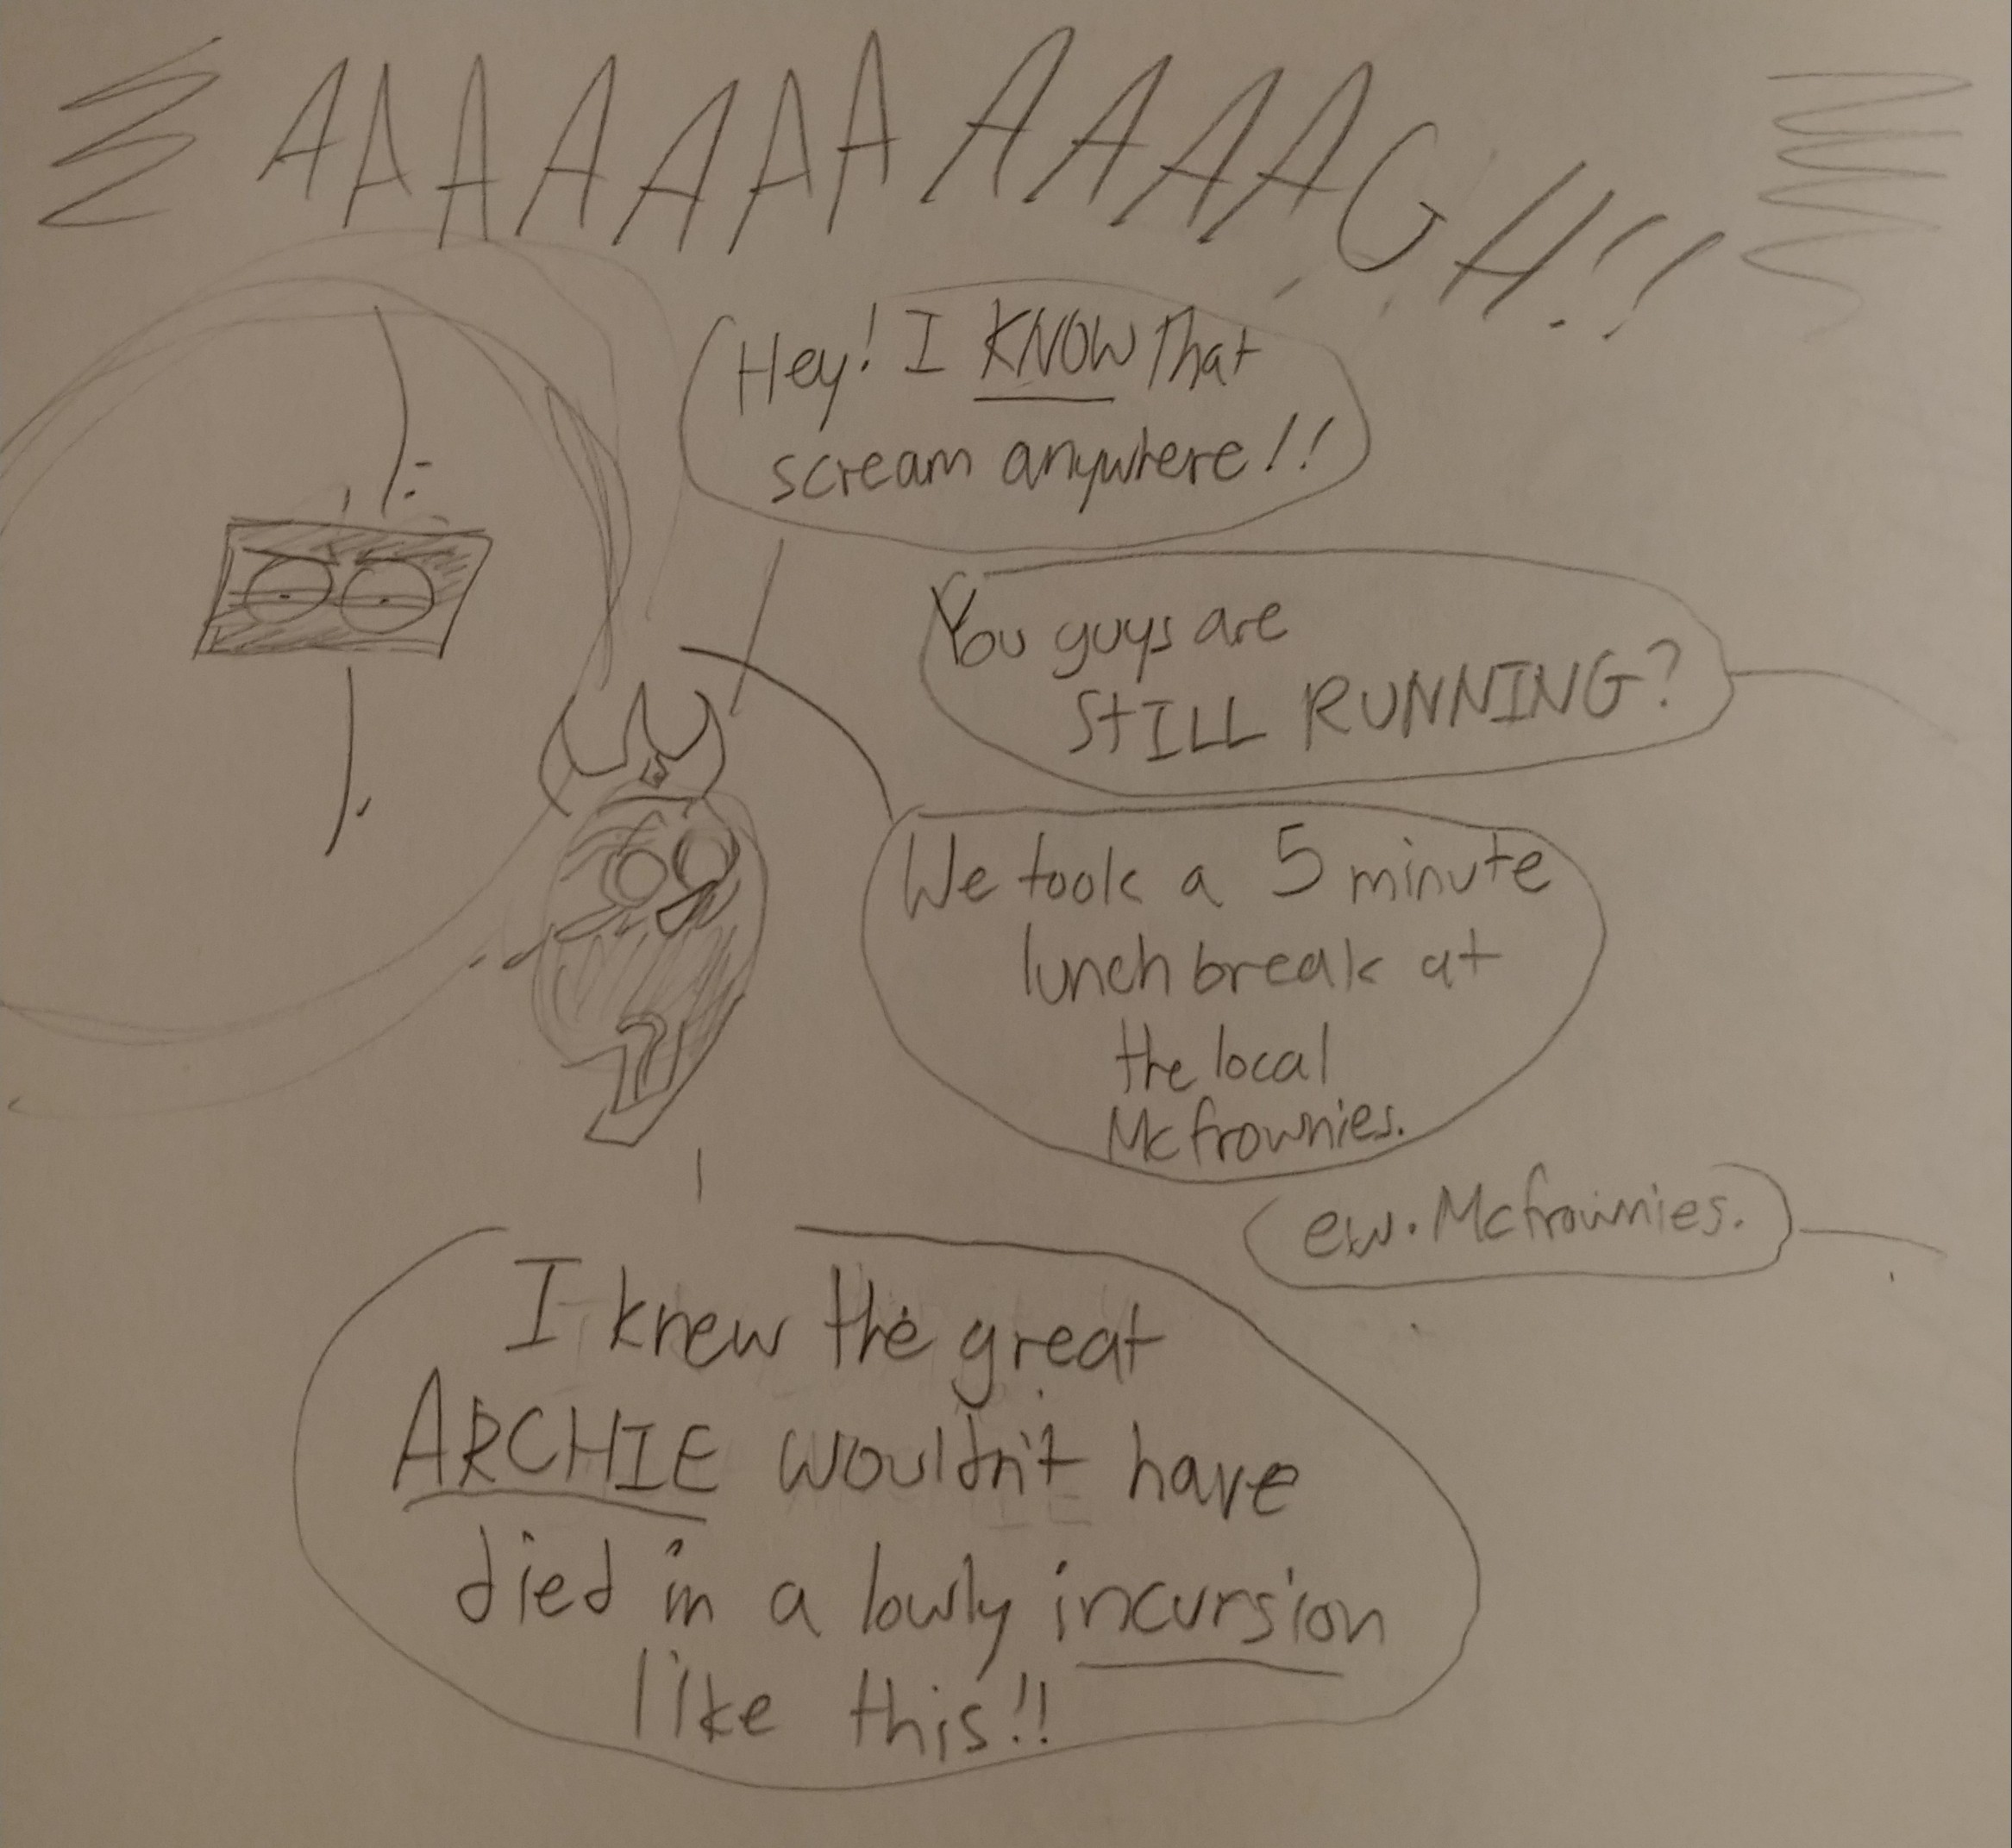 AAAAAAAAAAAGH!!
Hey! I KNOW that
scream anywhere!!
You guys are
STILL RUNNING?
We took a 5 minute
lunch break at
the local
Mcfrownies.
ew. Mcfrownies.
I knew the great
ARCHIE wouldn't have
died in a lowly incursion
like this!!